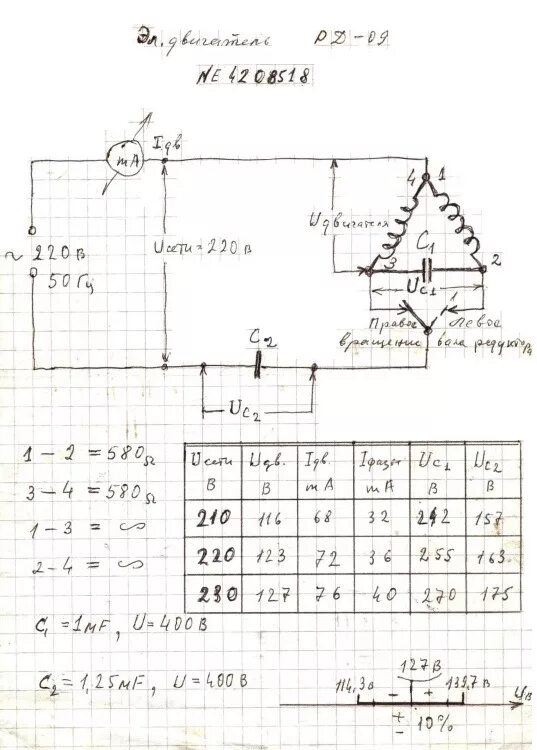 Эл. двигатель РД-09
NE 4208518
mA
Iдв
4 1
Uдвигателя
C1
Uсети = 220 в
~ 220 в
50 Гц
3 2
Uc1
1
Правое левое
вращение вала редуктора
C2
Uc2
1 - 2 = 580Ω
3 - 4 = 580Ω
1 - 3 = ∞
2 - 4 = ∞
Uсети В Uдв. В Iдв. mA Iфазы mA Uc1 В Uc2 В
210 116 68 32 242 157
220 123 72 36 255 163
230 127 76 40 270 175
C1 = 1MF, U = 400 В
C2 = 1,25MF, U = 400 В
127 В
114,3в - + 139,7 В
Uв
± 10%